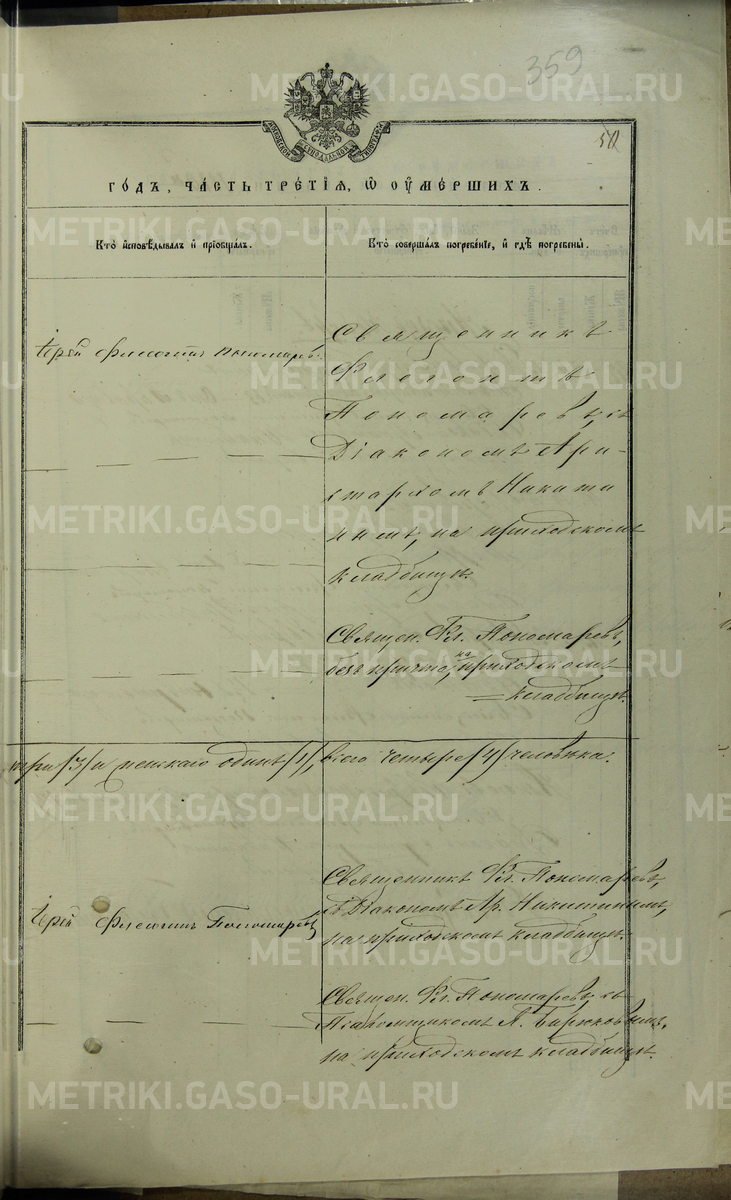 359
METRIKI.GASO-URAL.RU
МОСКОВСКОЙ СѴНОДАЛЬНОЙ ТИПОГРАФІИ
ГОДЪ, ЧАСТЬ ТРЕТІЯ, Ѡ ОУМЕРШИХЪ.
Кто исповѣдывалъ и пріобщалъ.
Кто совершалъ погребеніе, и гдѣ погребены.
Іерей Флегонтъ Пономаревъ.
Священникъ
Флегонтъ
Пономаревъ, съ
Діакономъ Ари-
стархомъ Никити
нымъ, на приходскомъ
кладбищѣ.
Священ. Фл. Пономаревъ,
безъ причта, на приходскомъ
кладбищѣ.
три /3/ и женскаго одинъ /1/, всего четыре /4/ человѣка.
Іерей Флегонтъ Пономаревъ
Священникъ Фл. Пономаревъ,
съ Діакономъ Ар. Никитинымъ,
на приходскомъ кладбищѣ.
Священ. Фл. Пономаревъ, съ
Псаломщикомъ А. Бирюковымъ,
на приходскомъ кладбищѣ.